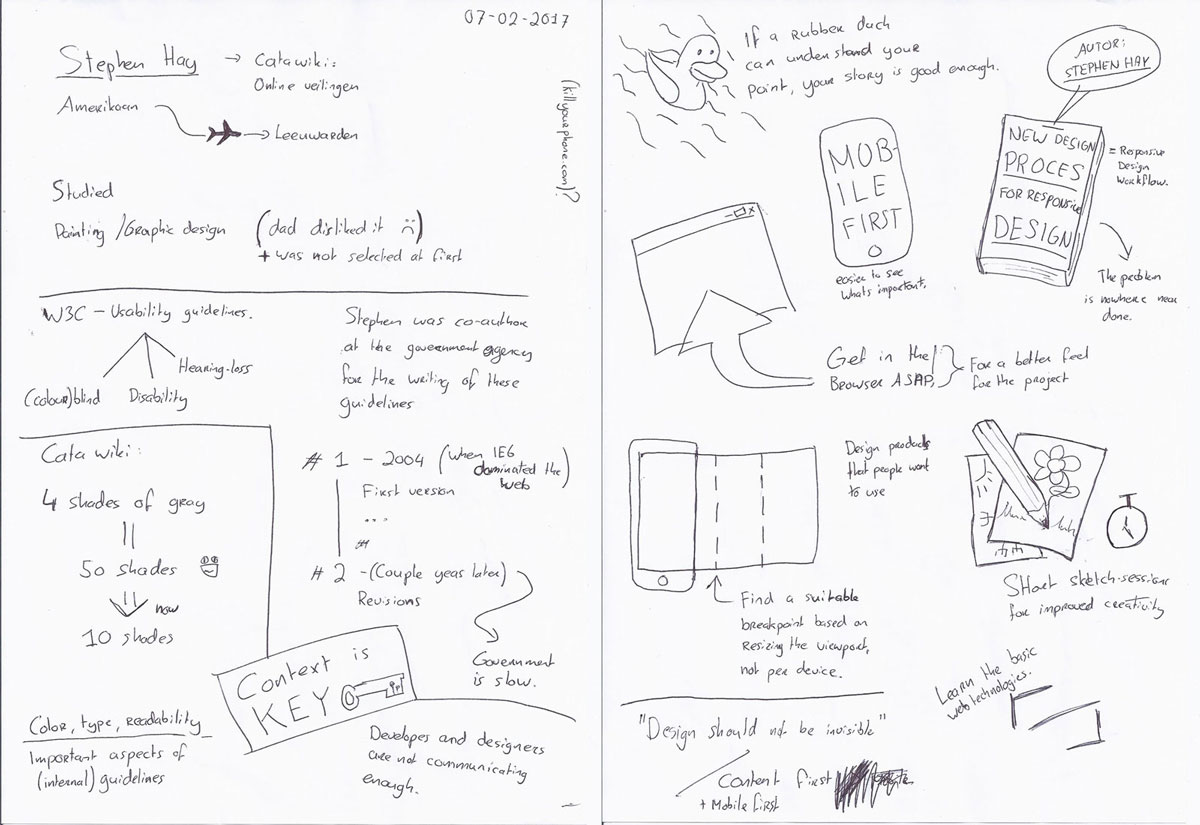 07-02-2017
Stephen Hay → Catawiki:
Online veilingen
Amerikaan
→ Leeuwarden
(killyourphone.com)?
Studied
Painting / Graphic design (dad disliked it :()
+ was not selected at first
W3C – Usability guidelines.
Hearing-loss
(colour)blind Disability
Stephen was co-author
at the government agency
for the writing of these
guidelines
Cata wiki:
4 shades of gray
50 shades
now
10 shades
# 1 – 2004 (when IE6
dominated the
web)
First version
...
#
# 2 -(Couple yeas later)
Revisions
Government
is slow.
Context is
KEY
Color, type, readability
Important aspects of
(internal) guidelines
Developes and designers
are not communicating
enough.
If a rubber duck
can understand your
point, your story is good enough.
AUTOR:
STEPHEN HAY
NEW DESIGN
PROCES
FOR RESPONSIVE
DESIGN
= Responsive
Design
workflow.
The problem
is nowhere near
done.
MOB-
ILE
FIRST
easier to see
whats important.
Get in the
Browser ASAP.
For a better feel
for the project
Design products
that people want
to use
Find a suitable
breakpoint based on
Resizing the viewport,
not per device.
Short sketch-sessions
for improved creativity
Learn the basic
web technologies.
"Design should not be invisible"
Content first
+ Mobile first